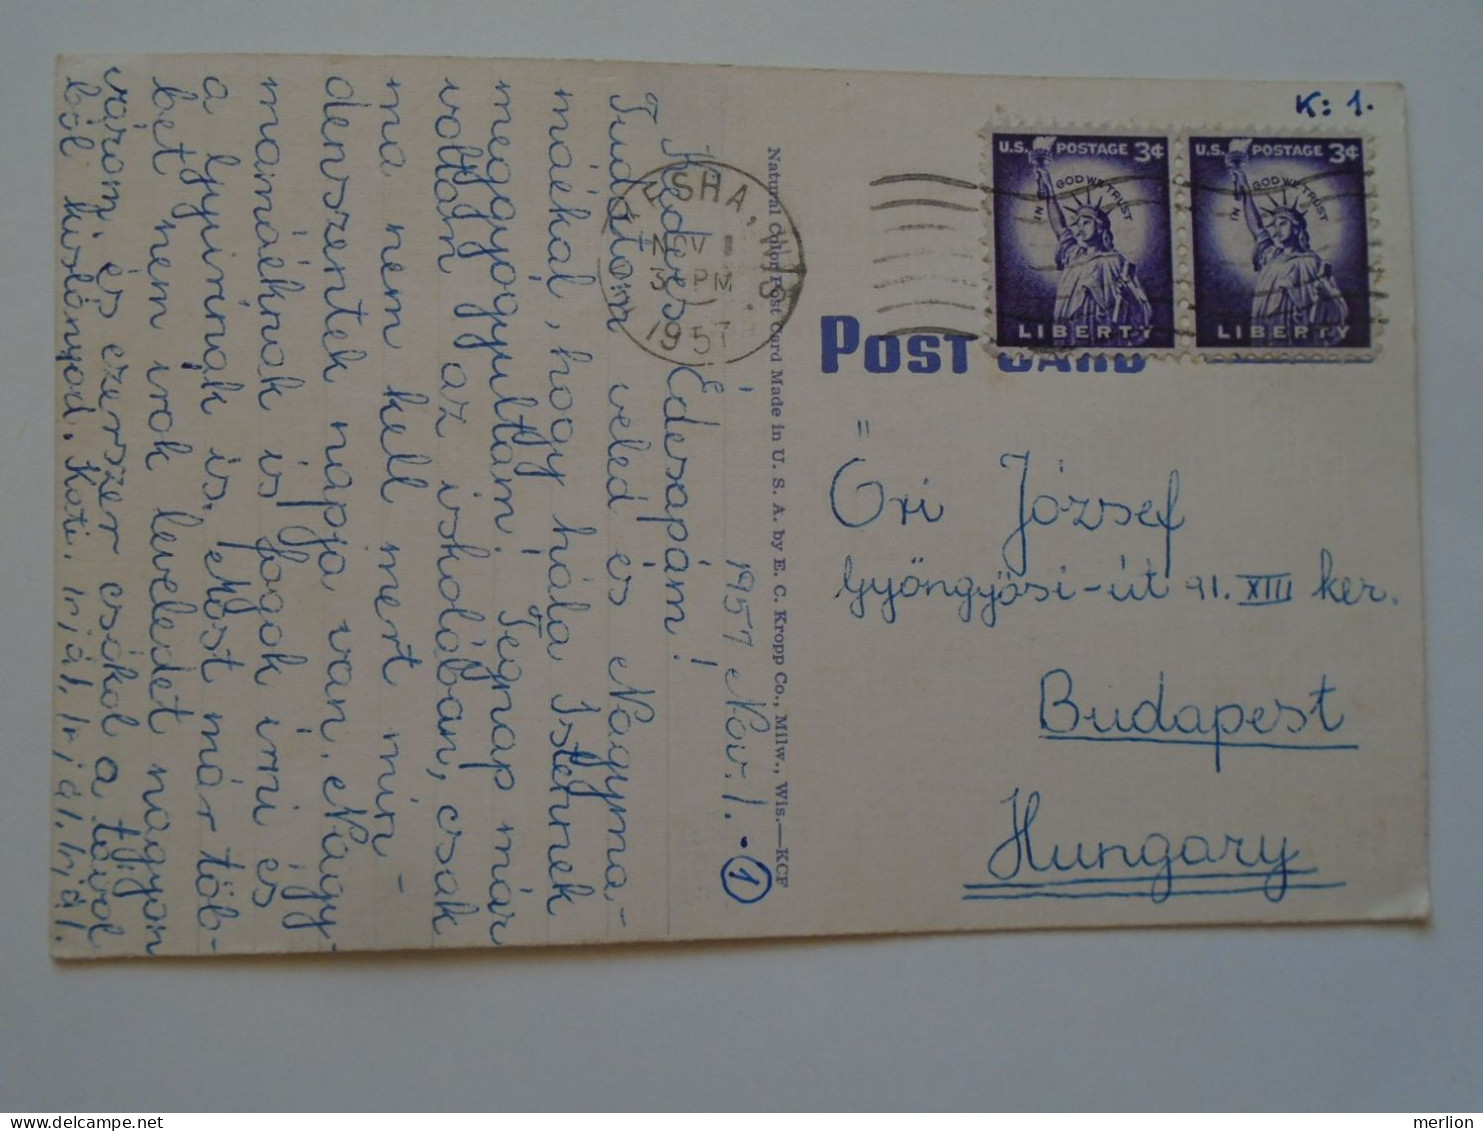 K: 1.
U.S. POSTAGE 3¢
IN GOD WE TRUST
LIBERTY
U.S. POSTAGE 3¢
IN GOD WE TRUST
LIBERTY
ESHA, WIS
NOV 1
3 PM
1957
POST CARD
Őri József
Gyöngyösi-út 91. XIII ker.
Budapest
Hungary
Natural Color Post Card Made in U. S. A. by E. C. Kropp Co., Milw., Wis.—KCF
1957 Nov. 1. - 1
Kedves Édesapám!
Tudatom veled és Nagyma-
máékal, hogy hála Istennek
meggyogyultam. Tegnap már
voltam az iskolában, csak
ma nem kell mert min-
denszentek napja van. Nagy-
mamáéknak is fogok irni es
a Gyurinak is. Most már töb-
bet nem irok leveledet nagyon
várom és ezerszer csókol a távol
ból kislányod. Kati. Irjál, Irjál. Irjál.
merlion